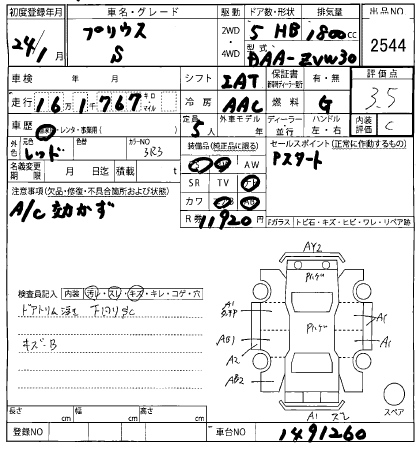 初度登録年月 車名・グレード 駆動 ドア数・形状 排気量 出品NO
24/1月 プリウス S 2WD 4WD 5 HB 1800cc 2544
型式 DAA-ZVW30
車検 年 月 シフト IAT 保証書 有・無 評価点
走行 16万1767 キロ・マイル 冷房 AAC 燃料 G 3.5
車歴 レンタ・事業用( ) 定員 5人 外車モデル 年 ディーラー・並行 ハンドル 左・右 内装評価 C
外色 元色 レッド 色替 カラーNO 3R3 装備品(純正品に限る) セールスポイント(正常に動作するもの)
AW Pスタート
名義変更期限 月 日迄 積載 t SR TV
カワ
注意事項(欠品・修復・不具合箇所および状態) R券 11920円 Fガラス トビ石・キズ・ヒビ・ワレ・リペア跡
A/C 効かず
AY2
検査員記入 内装 汚レ・スレ・キズ・キレ・コゲ・穴 Pハゲ
A1 A1
ドアトリム Pハゲ
AB1 A1
キズ-B A2
AB2
スペア
長さ cm 幅 cm 高さ cm A1 スレ
登録NO 車台NO 1491260